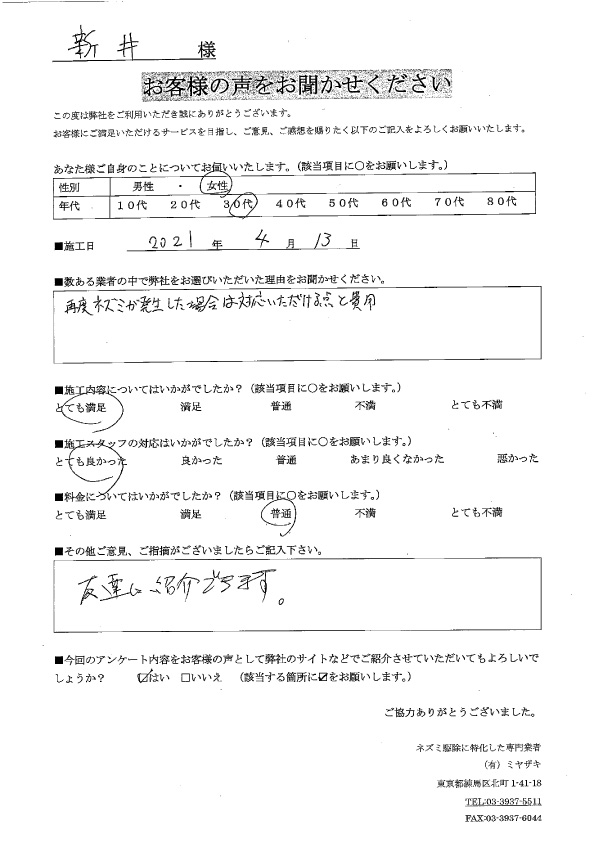 新井 様
お客様の声をお聞かせください
この度は弊社をご利用いただき誠にありがとうございます。
お客様にご満足いただけるサービスを目指し、ご意見、ご感想を賜りたく以下のご記入をよろしくお願いいたします。
あなた様ご自身のことについてお伺いいたします。（該当項目に○をお願いします。）
性別 男性 ・ 女性
年代 10代 20代 30代 40代 50代 60代 70代 80代
■施工日 2021 年 4 月 13 日
■数ある業者の中で弊社をお選びいただいた理由をお聞かせください。
再度ネズミが発生した場合は対応いただける点と費用
■施工内容についてはいかがでしたか？（該当項目に○をお願いします。）
とても満足 満足 普通 不満 とても不満
■施工スタッフの対応はいかがでしたか？（該当項目に○をお願いします。）
とても良かった 良かった 普通 あまり良くなかった 悪かった
■料金についてはいかがでしたか？（該当項目に○をお願いします。）
とても満足 満足 普通 不満 とても不満
■その他ご意見、ご指摘がございましたらご記入下さい。
友達に紹介できます。
■今回のアンケート内容をお客様の声として弊社のサイトなどでご紹介させていただいてもよろしいで
しょうか？ ☑はい □いいえ （該当する箇所に☑をお願いします。）
ご協力ありがとうございました。
ネズミ駆除に特化した専門業者
（有）ミヤザキ
東京都練馬区北町 1-41-18
TEL:03-3937-5511
FAX:03-3937-6044